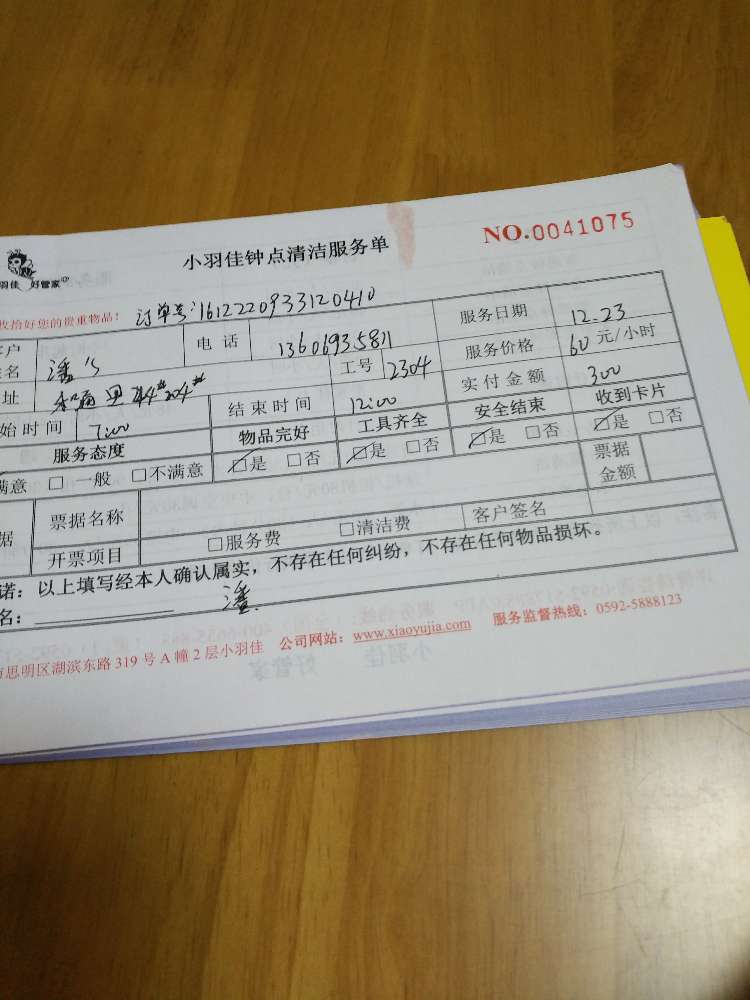 小羽佳钟点清洁服务单
NO.0041075
羽佳 好管家
收拾好您的贵重物品! 订单号:1612220933120410
客户姓名 潘's 电话 13606935811 服务日期 12.23
址 工号 2304 服务价格 60 元/小时
始时间 7:00 结束时间 12:00 实付金额 300
服务态度 物品完好 工具齐全 安全结束 收到卡片
满意 □一般 □不满意 ☑是 □否 ☑是 □否 ☑是 □否 ☑是 □否
据 票据名称 票据金额
开票项目 □服务费 □清洁费 客户签名
诺：以上填写经本人确认属实，不存在任何纠纷，不存在任何物品损坏。
名： 潘
市思明区湖滨东路319号A幢2层小羽佳 公司网站：www.xiaoyujia.com 服务监督热线：0592-5888123